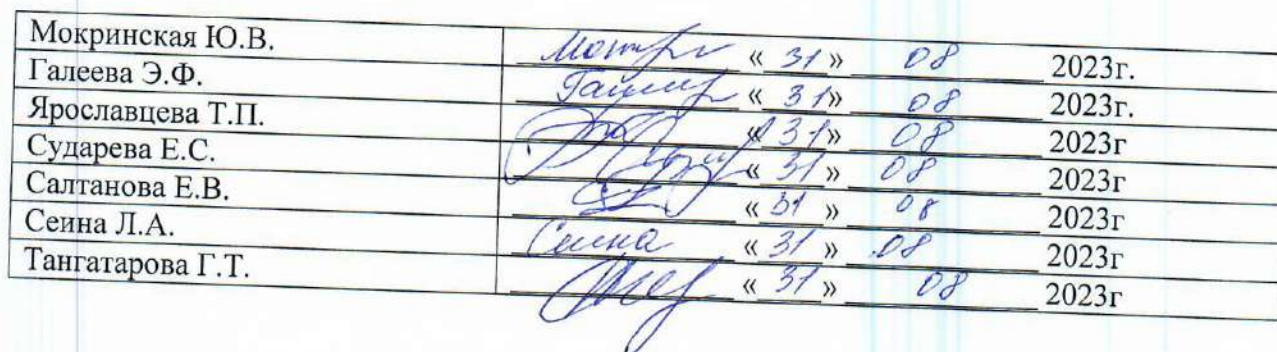 Мокринская Ю.В. « 31 » 08 2023г.
Галеева Э.Ф. « 31 » 08 2023г.
Ярославцева Т.П. « 31 » 08 2023г
Сударева Е.С. « 31 » 08 2023г
Салтанова Е.В. « 31 » 08 2023г
Сеина Л.А. Сеина « 31 » 08 2023г
Тангатарова Г.Т. « 31 » 08 2023г